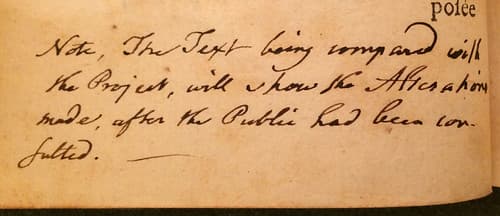 polée
Note, The Text being compared with
the Project, will show the Alterations
made, after the Public had been con-
sulted.